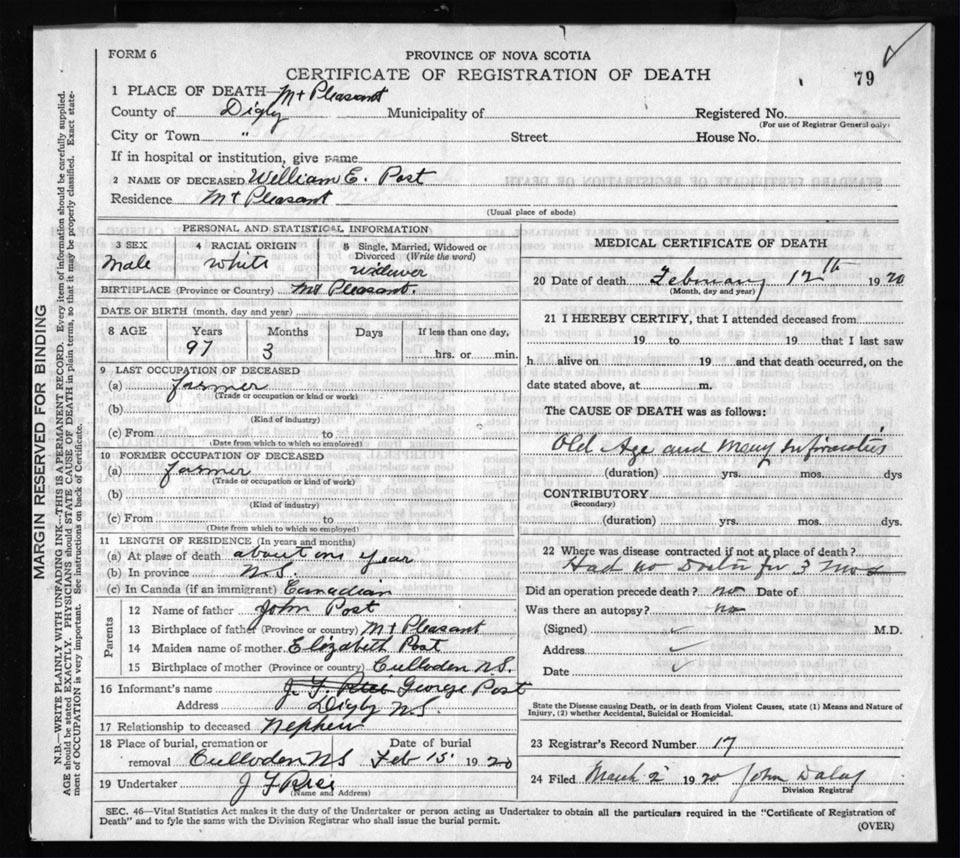 FORM 6
PROVINCE OF NOVA SCOTIA
CERTIFICATE OF REGISTRATION OF DEATH
79
1 PLACE OF DEATH Mt Pleasant
County of Digby Municipality of Registered No.
(For use of Registrar General only)
City or Town " Street House No.
If in hospital or institution, give name
2 NAME OF DECEASED William E. Post
Residence Mt Pleasant
(Usual place of abode)
PERSONAL AND STATISTICAL INFORMATION
3 SEX Male
4 RACIAL ORIGIN White
5 Single, Married, Widowed or Divorced (Write the word) Widower
BIRTHPLACE (Province or Country) Mt Pleasant.
DATE OF BIRTH (month, day and year)
8 AGE Years Months Days If less than one day,
97 3 hrs. or min.
9 LAST OCCUPATION OF DECEASED
(a) Farmer
(Trade or occupation or kind or work)
(b)
(Kind of industry)
(c) From to
(Date from which to which so employed)
10 FORMER OCCUPATION OF DECEASED
(a) Farmer
(Trade or occupation or kind of work)
(b)
(Kind of industry)
(c) From to
(Date from which to which so employed)
11 LENGTH OF RESIDENCE (In years and months)
(a) At place of death about one year
(b) In province N.S.
(c) In Canada (if an immigrant) Canadian
Parents
12 Name of father John Post
13 Birthplace of father (Province or country) Mt Pleasant
14 Maiden name of mother Elizabeth Post
15 Birthplace of mother (Province or country) Culloden N.S.
16 Informant's name J. F. Rice George Post
Address Digby N.S.
17 Relationship to deceased Nephew
18 Place of burial, cremation or removal Culloden NS Date of burial Feb 15 1920
19 Undertaker J F Rice
(Name and Address)
MEDICAL CERTIFICATE OF DEATH
20 Date of death February 12th 1920
(Month, day and year)
21 I HEREBY CERTIFY, that I attended deceased from
19 to 19 that I last saw
h alive on 19 and that death occurred, on the
date stated above, at m.
The CAUSE OF DEATH was as follows:
Old Age and Many Infirmities
(duration) yrs. mos. dys
CONTRIBUTORY
(Secondary)
(duration) yrs. mos. dys.
22 Where was disease contracted if not at place of death?
Had no Doctor for 3 mos
Did an operation precede death? no Date of
Was there an autopsy? no
(Signed) M.D.
Address
Date
State the Disease causing Death, or in death from Violent Causes, state (1) Means and Nature of
Injury, (2) whether Accidental, Suicidal or Homicidal.
23 Registrar's Record Number 17
24 Filed March 2 1920 John Daley
Division Registrar
SEC. 46—Vital Statistics Act makes it the duty of the Undertaker or person acting as Undertaker to obtain all the particulars required in the "Certificate of Registration of
Death" and to fyle the same with the Division Registrar who shall issue the burial permit.
(OVER)
MARGIN RESERVED FOR BINDING
N.B.—WRITE PLAINLY WITH UNFADING INK—THIS IS A PERMANENT RECORD. Every item of information should be carefully supplied.
AGE should be stated EXACTLY. PHYSICIANS should STATE CAUSE OF DEATH in plain terms, so that it may be properly classified. Exact statement of OCCUPATION is very important. See instructions on back of Certificate.